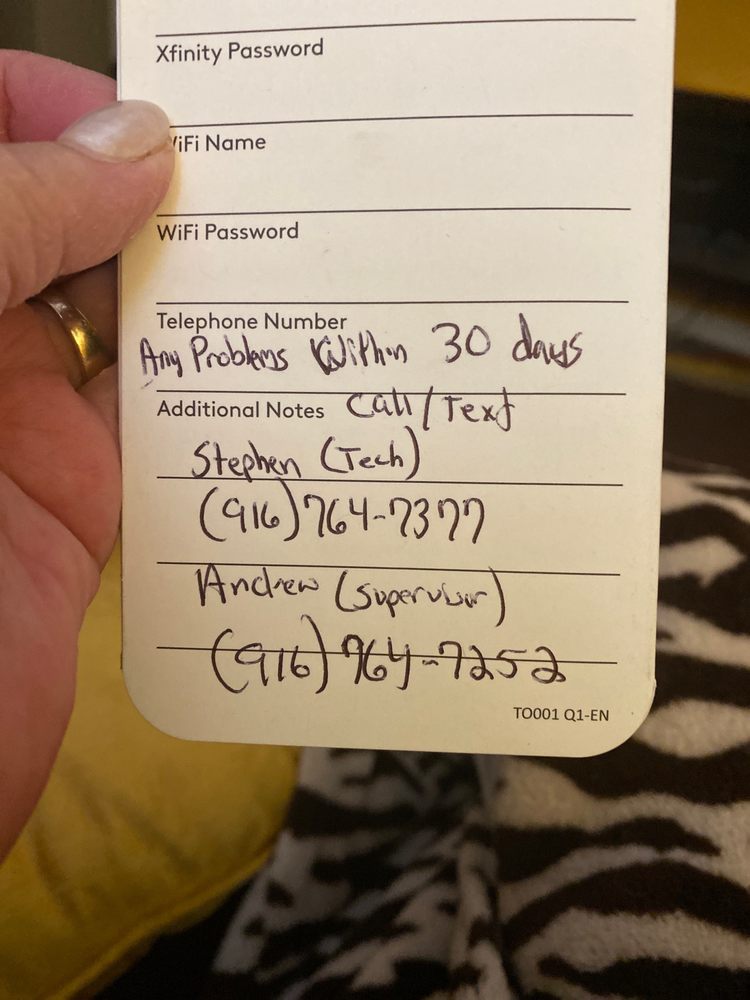 Xfinity Password
WiFi Name
WiFi Password
Telephone Number
Any Problems Within 30 days
Additional Notes Call/Text
Stephen (Tech)
(916)764-7377
Andrew (Supervisor)
(916)764-7252
TO001 Q1-EN